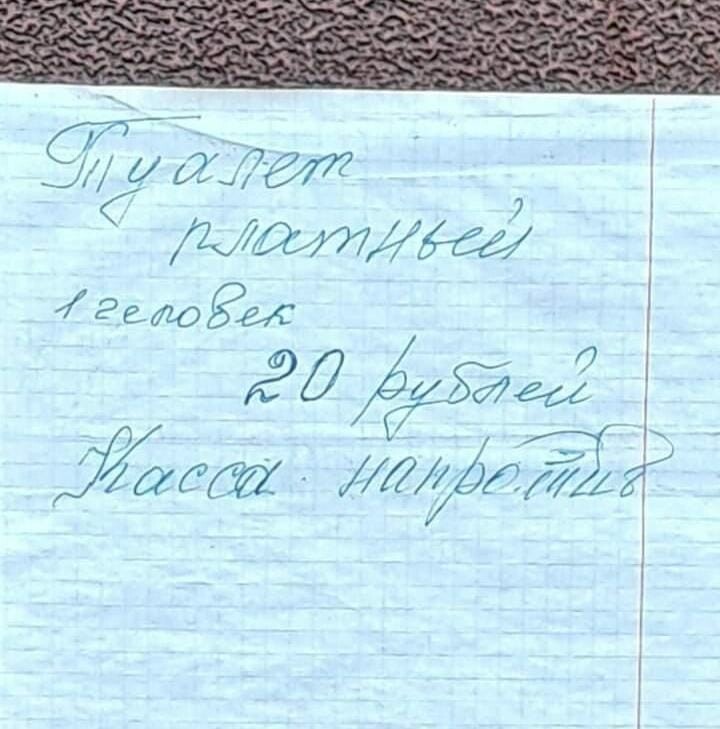 Туалет
платный
1 человек
20 рублей
Касса напротив